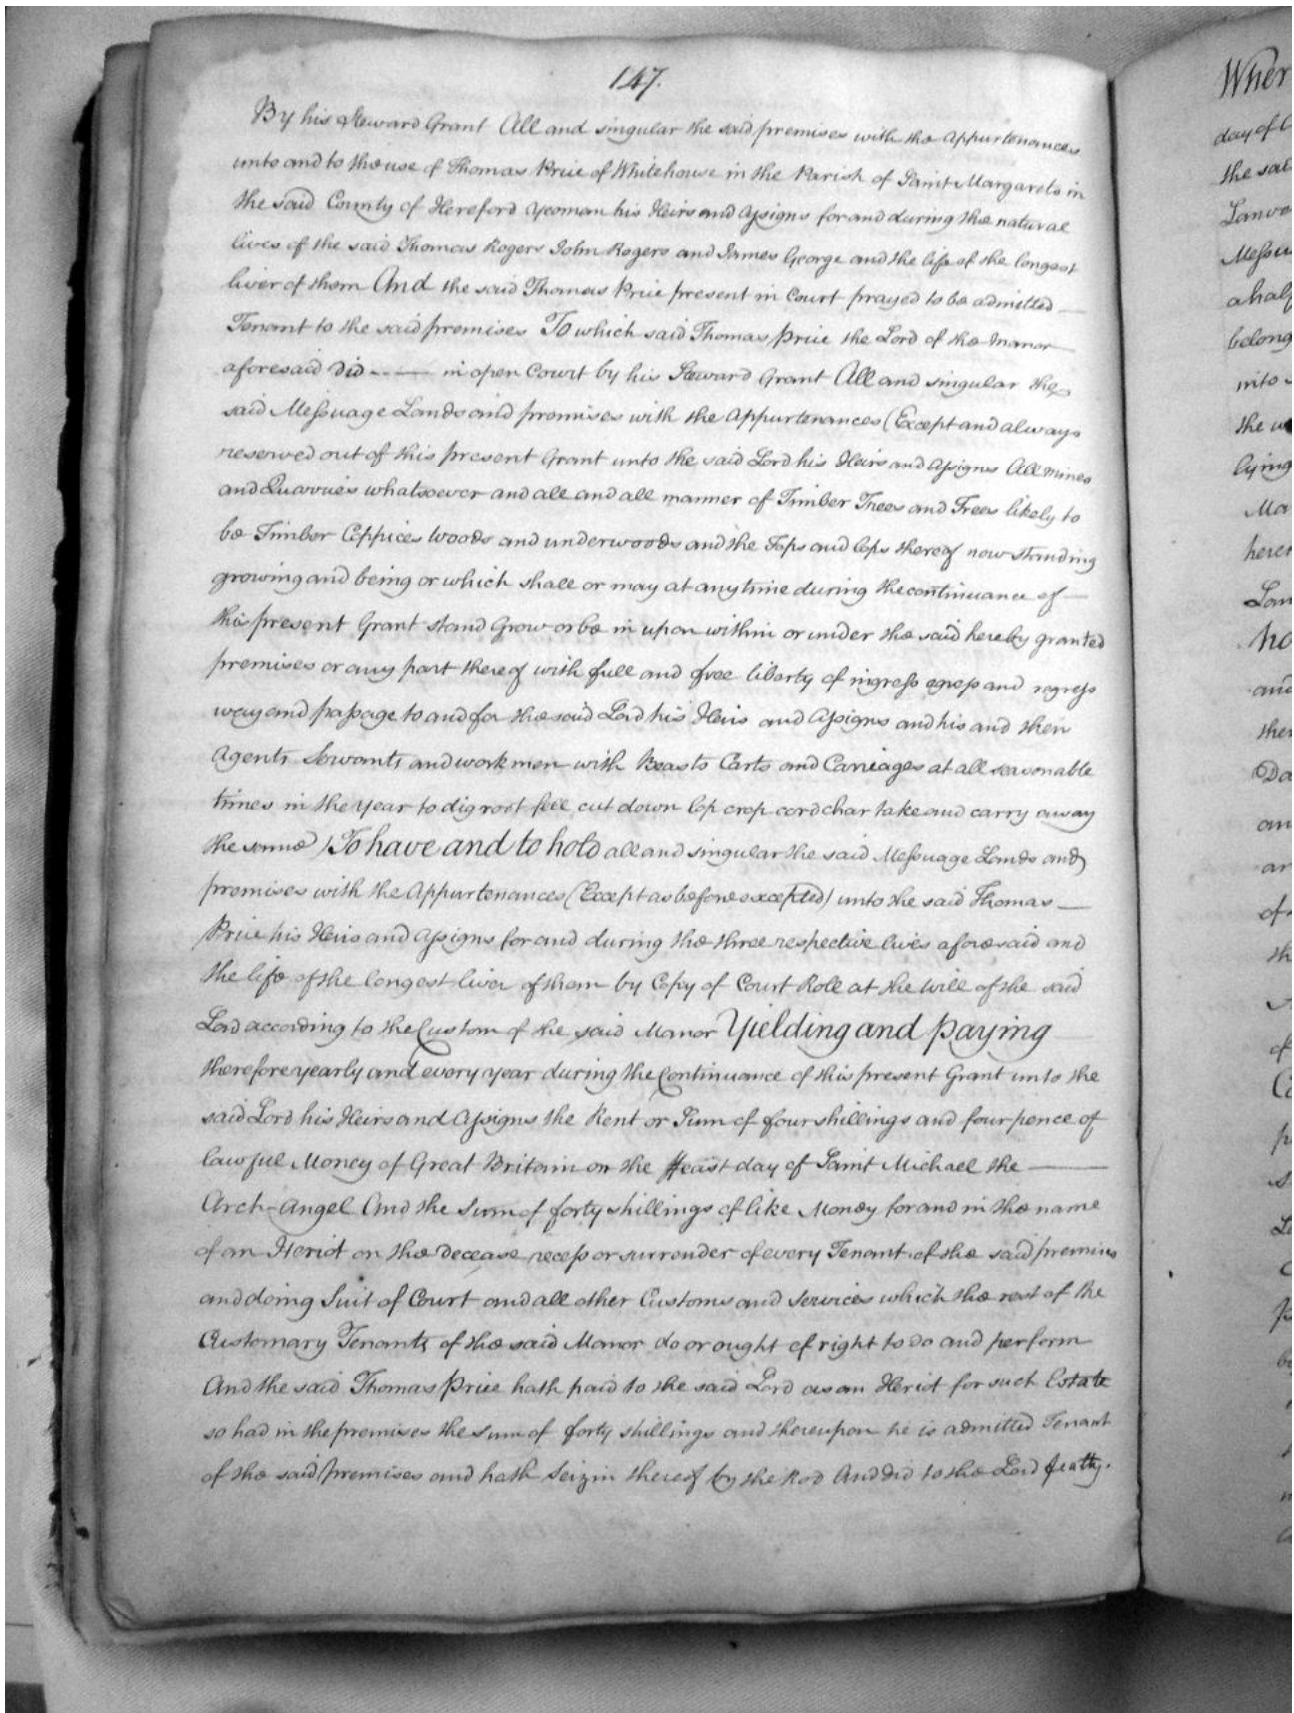 147.
By his Steward Grant All and singular the said premises with the Appurtenances
unto and to the use of Thomas Price of Whitehouse in the Parish of Saint Margarets in
the said County of Hereford Yeoman his Heirs and Assigns for and during the natural
lives of the said Thomas Rogers John Rogers and James George and the life of the longest
liver of them And the said Thomas Price present in Court prayed to be admitted —
Tenant to the said premises To which said Thomas Price the Lord of the Manor —
aforesaid Did - - — in open Court by his Steward Grant All and singular the
said Messuage Lands and premises with the Appurtenances (Except and always
reserved out of this present Grant unto the said Lord his Heirs and Assigns All mines
and Quarries whatsoever and all and all manner of Timber Trees and Trees likely to
be Timber Coppices Woods and underwoods and the Tops and lops thereof now standing
growing and being or which shall or may at any time during the continuance of —
this present Grant stand Grow or be in upon within or under the said hereby granted
premises or any part thereof with full and free liberty of ingress egress and regress
way and passage to and for the said Lord his Heirs and Assigns and his and their
Agents Servants and workmen with Beasts Carts and Carriages at all seasonable
times in the Year to dig root fell cut down lop crop cord char take and carry away
the same) To have and to hold all and singular the said Messuage Lands and
premises with the Appurtenances (Except as before excepted) unto the said Thomas —
Price his Heirs and Assigns for and during the three respective lives aforesaid and
the life of the longest liver of them by Copy of Court Roll at the Will of the said
Lord according to the Custom of the said Manor Yielding and paying —
therefore yearly and every year during the Continuance of this present Grant unto the
said Lord his Heirs and Assigns the Rent or Sum of four shillings and four pence of
lawful Money of Great Britain on the ffeast day of Saint Michael the —
Arch-Angel And the Sum of forty shillings of like Money for and in the name
of an Heriot on the Decease recess or surrender of every Tenant of the said premises
and doing Suit of Court and all other Customs and Services which the rest of the
Customary Tenants of the said Manor do or ought of right to do and perform
And the said Thomas Price hath paid to the said Lord as an Heriot for such Estate
so had in the premises the Sum of forty shillings and thereupon he is admitted Tenant
of the said premises and hath Seizin thereof by the Rod And Did to the Lord fealty.
Wher
day of
the said
Lanve
Messu
a half
belong
into
the
lying
Ma
herei
Lan
and
ther
Da
an
ar
of
th
of